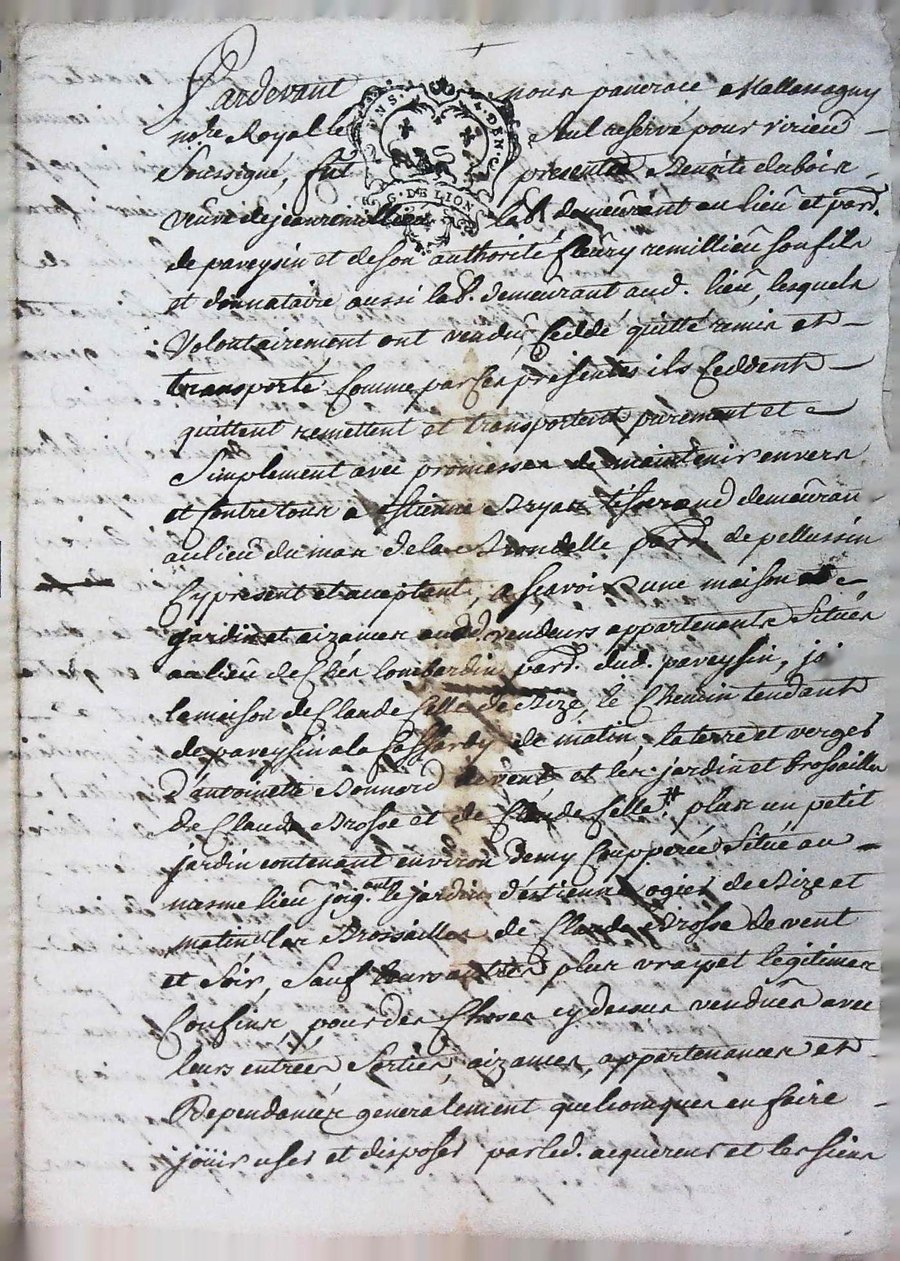 Pardevant nous pancrace Mallemagny
nore Royal le seul reservé pour virieu
Soussigné, fut presente Benoite dubois
veuve de jean remillieu lab. demeurant au lieu et parr.
de paveysin et de son authorité fleury remillieu son fils
et donnataire aussi lab. demeurant aud. lieu, lesquels
Volontairement ont vendu, Ceddé quitté remis et
transporté Comme par Ces presentes ils Ceddent
quittent remettent et transportent purement et
Simplement avec promesses de maintenir envers
et Contre tous a Estienne Bryas tisserand demeuran
au lieu du mas de la Brondelle parr. de pellussin
Cy present et acceptant, a scavoir une maison
jardin et aizances aud. vendeurs appartenants Situés
au lieu de Chés Lombardin parr. dud. paveysin, jo
la maison de Claude selle de Bize, le Chemin tendant
de paveysin a la Cassardy de matin, la terre et verger
d'antoinette Bonnard de vent et les jardin et brossailles
de Claude Brosse et de Claude selle # plus un petit
jardin contenant environ demy Coupperée Situé au
mesme lieu joig.ant le jardin d'estienne ogier de Bize et
matin les Brossailles de Claude Brosse de vent
et Soir, Sauf leurs autres plus vrais et legitimes
Confins, pour des Choses cy dessus venduës avec
leurs entrées Sorties, aizances, appartenances et
Dependances generalement quelconques en faire
jouir user et disposer par led. acquereur et les siens